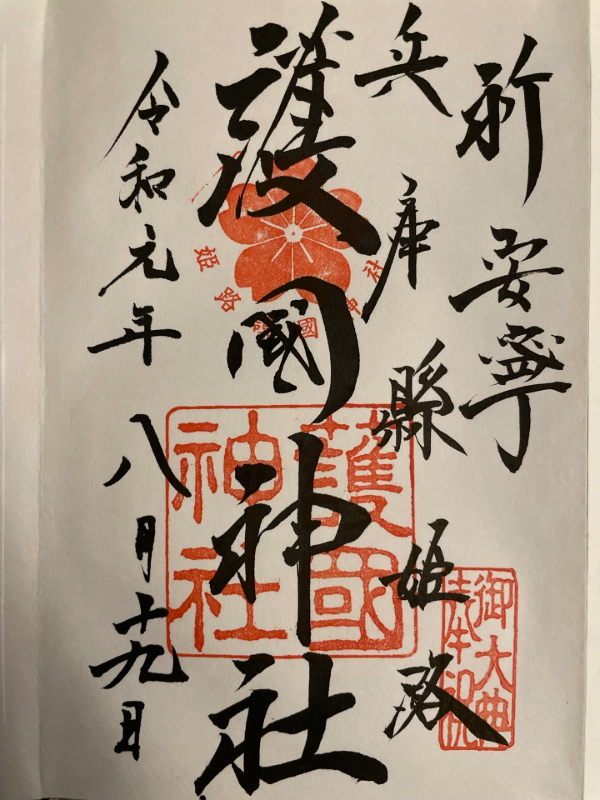 祈安寧
兵庫縣姫路
護國神社
令和元年八月十九日
姫路護國神社
護國
神社
御大典